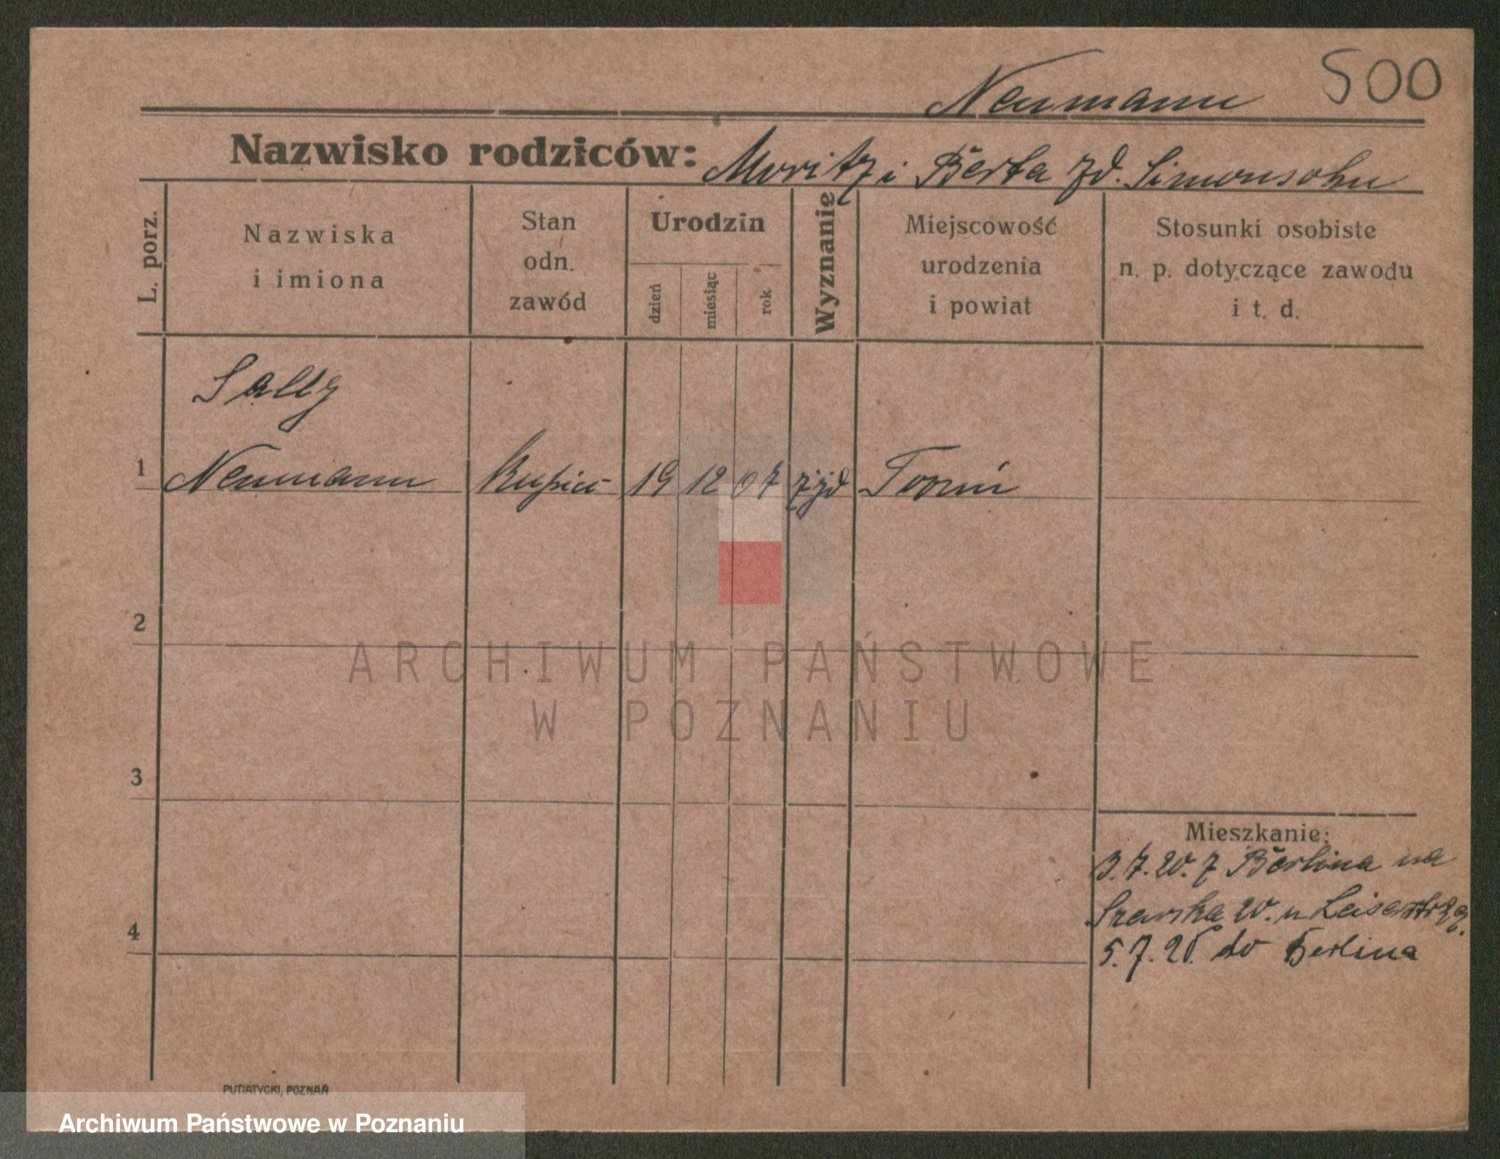 Neumann 500
Nazwisko rodziców: Moritz i Berta zd. Simonsohn
L. porz.
Nazwiska
i imiona
Stan
odn.
zawód
Urodzin
dzień
miesiąc
rok
Wyznanie
Miejscowość
urodzenia
i powiat
Stosunki osobiste
n. p. dotyczące zawodu
i t. d.
Sally
1 Neumann Kupiec 19 12 07 żyd Toruń
2
ARCHIWUM PAŃSTWOWE
W POZNANIU
3
Mieszkanie:
3.7.20. z Berlina na
Szewska 20. u
4
5.7.20. do Berlina
PUTIATYCKI, POZNAŃ
Archiwum Państwowe w Poznaniu